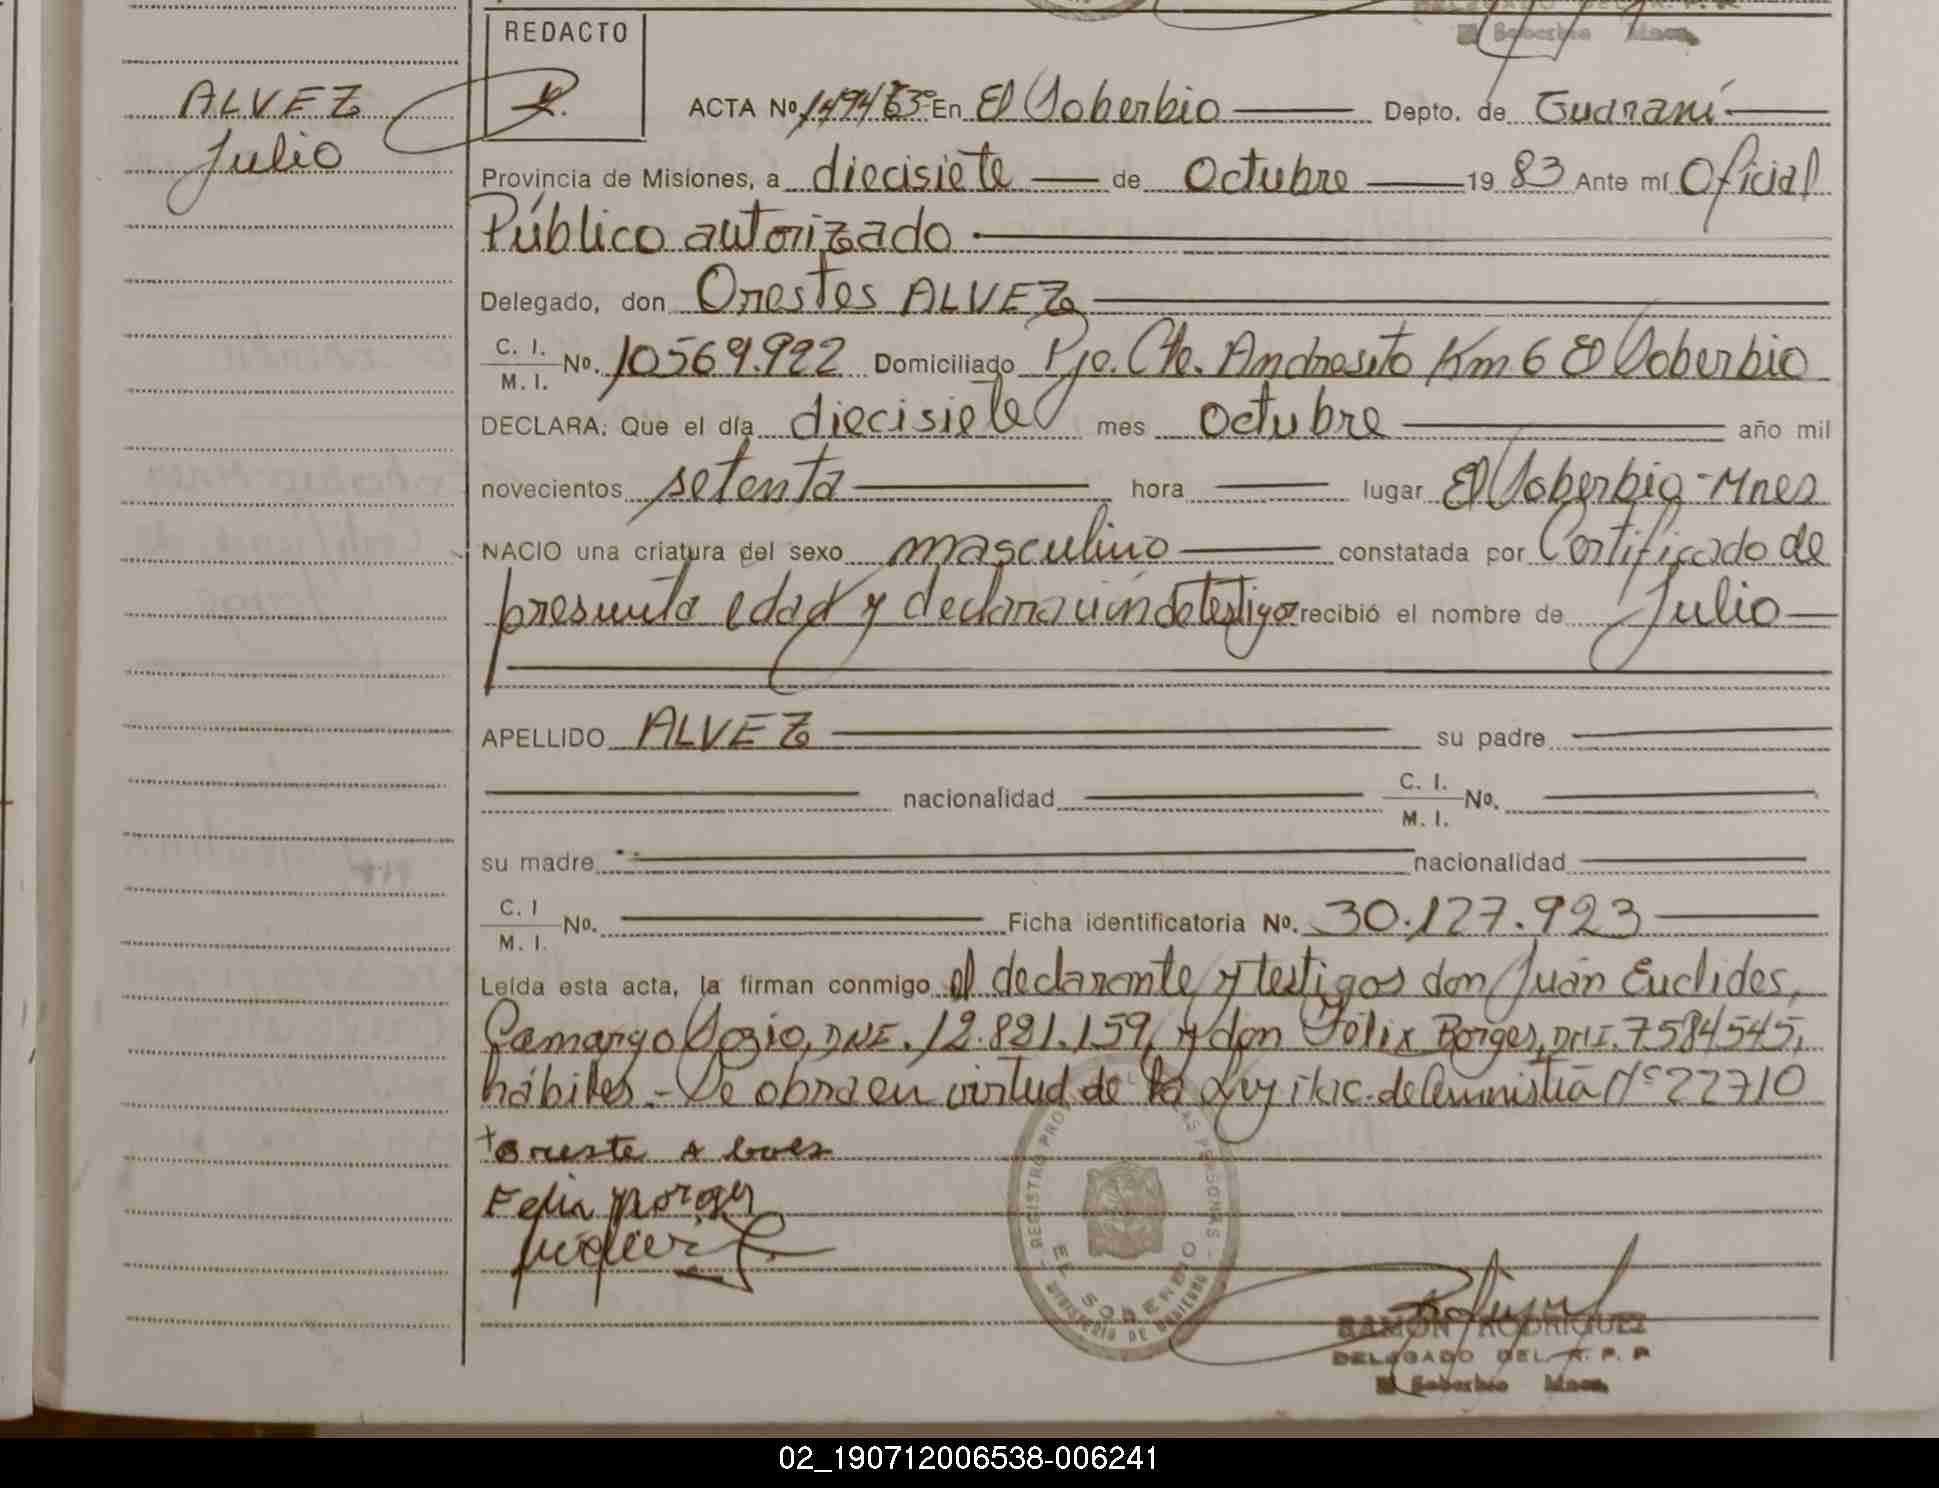 REDACTO
ALVEZ
Julio
ACTA Nº En El Soberbio Depto. de Guaraní
Provincia de Misiones, a diecisiete de Octubre 19 83 Ante mí Oficial
Público autorizado
Delegado, don Orestes ALVEZ
C. I.
M. I. Nº. 10569.922 Domiciliado Pje. Cte. Andresito Km 6 El Soberbio
DECLARA: Que el día diecisiete mes octubre año mil
novecientos setenta hora lugar El Soberbio-Mnes
NACIO una criatura del sexo masculino constatada por Certificado de
presunta edad y declaración de testigos recibió el nombre de Julio
APELLIDO ALVEZ su padre
nacionalidad C. I.
M. I. Nº.
su madre nacionalidad
C. I
M. I. Nº. Ficha identificatoria Nº. 30.127.923
Leída esta acta, la firman conmigo el declarante y testigos don Juan Euclides,
Camargo DNI. 12.821.159, y don Félix Borges, DNI. 7584545,
hábiles.- Se obra en virtud de la Ley de Amnistía Nº 22710
Felix Borges
REGISTRO PROV. DE LAS PERSONAS
EL SOBERBIO
MINISTERIO DE GOBIERNO
RAMON RODRIGUEZ
DELEGADO DEL R. P. P
El Soberbio Mnes.
02_190712006538-006241